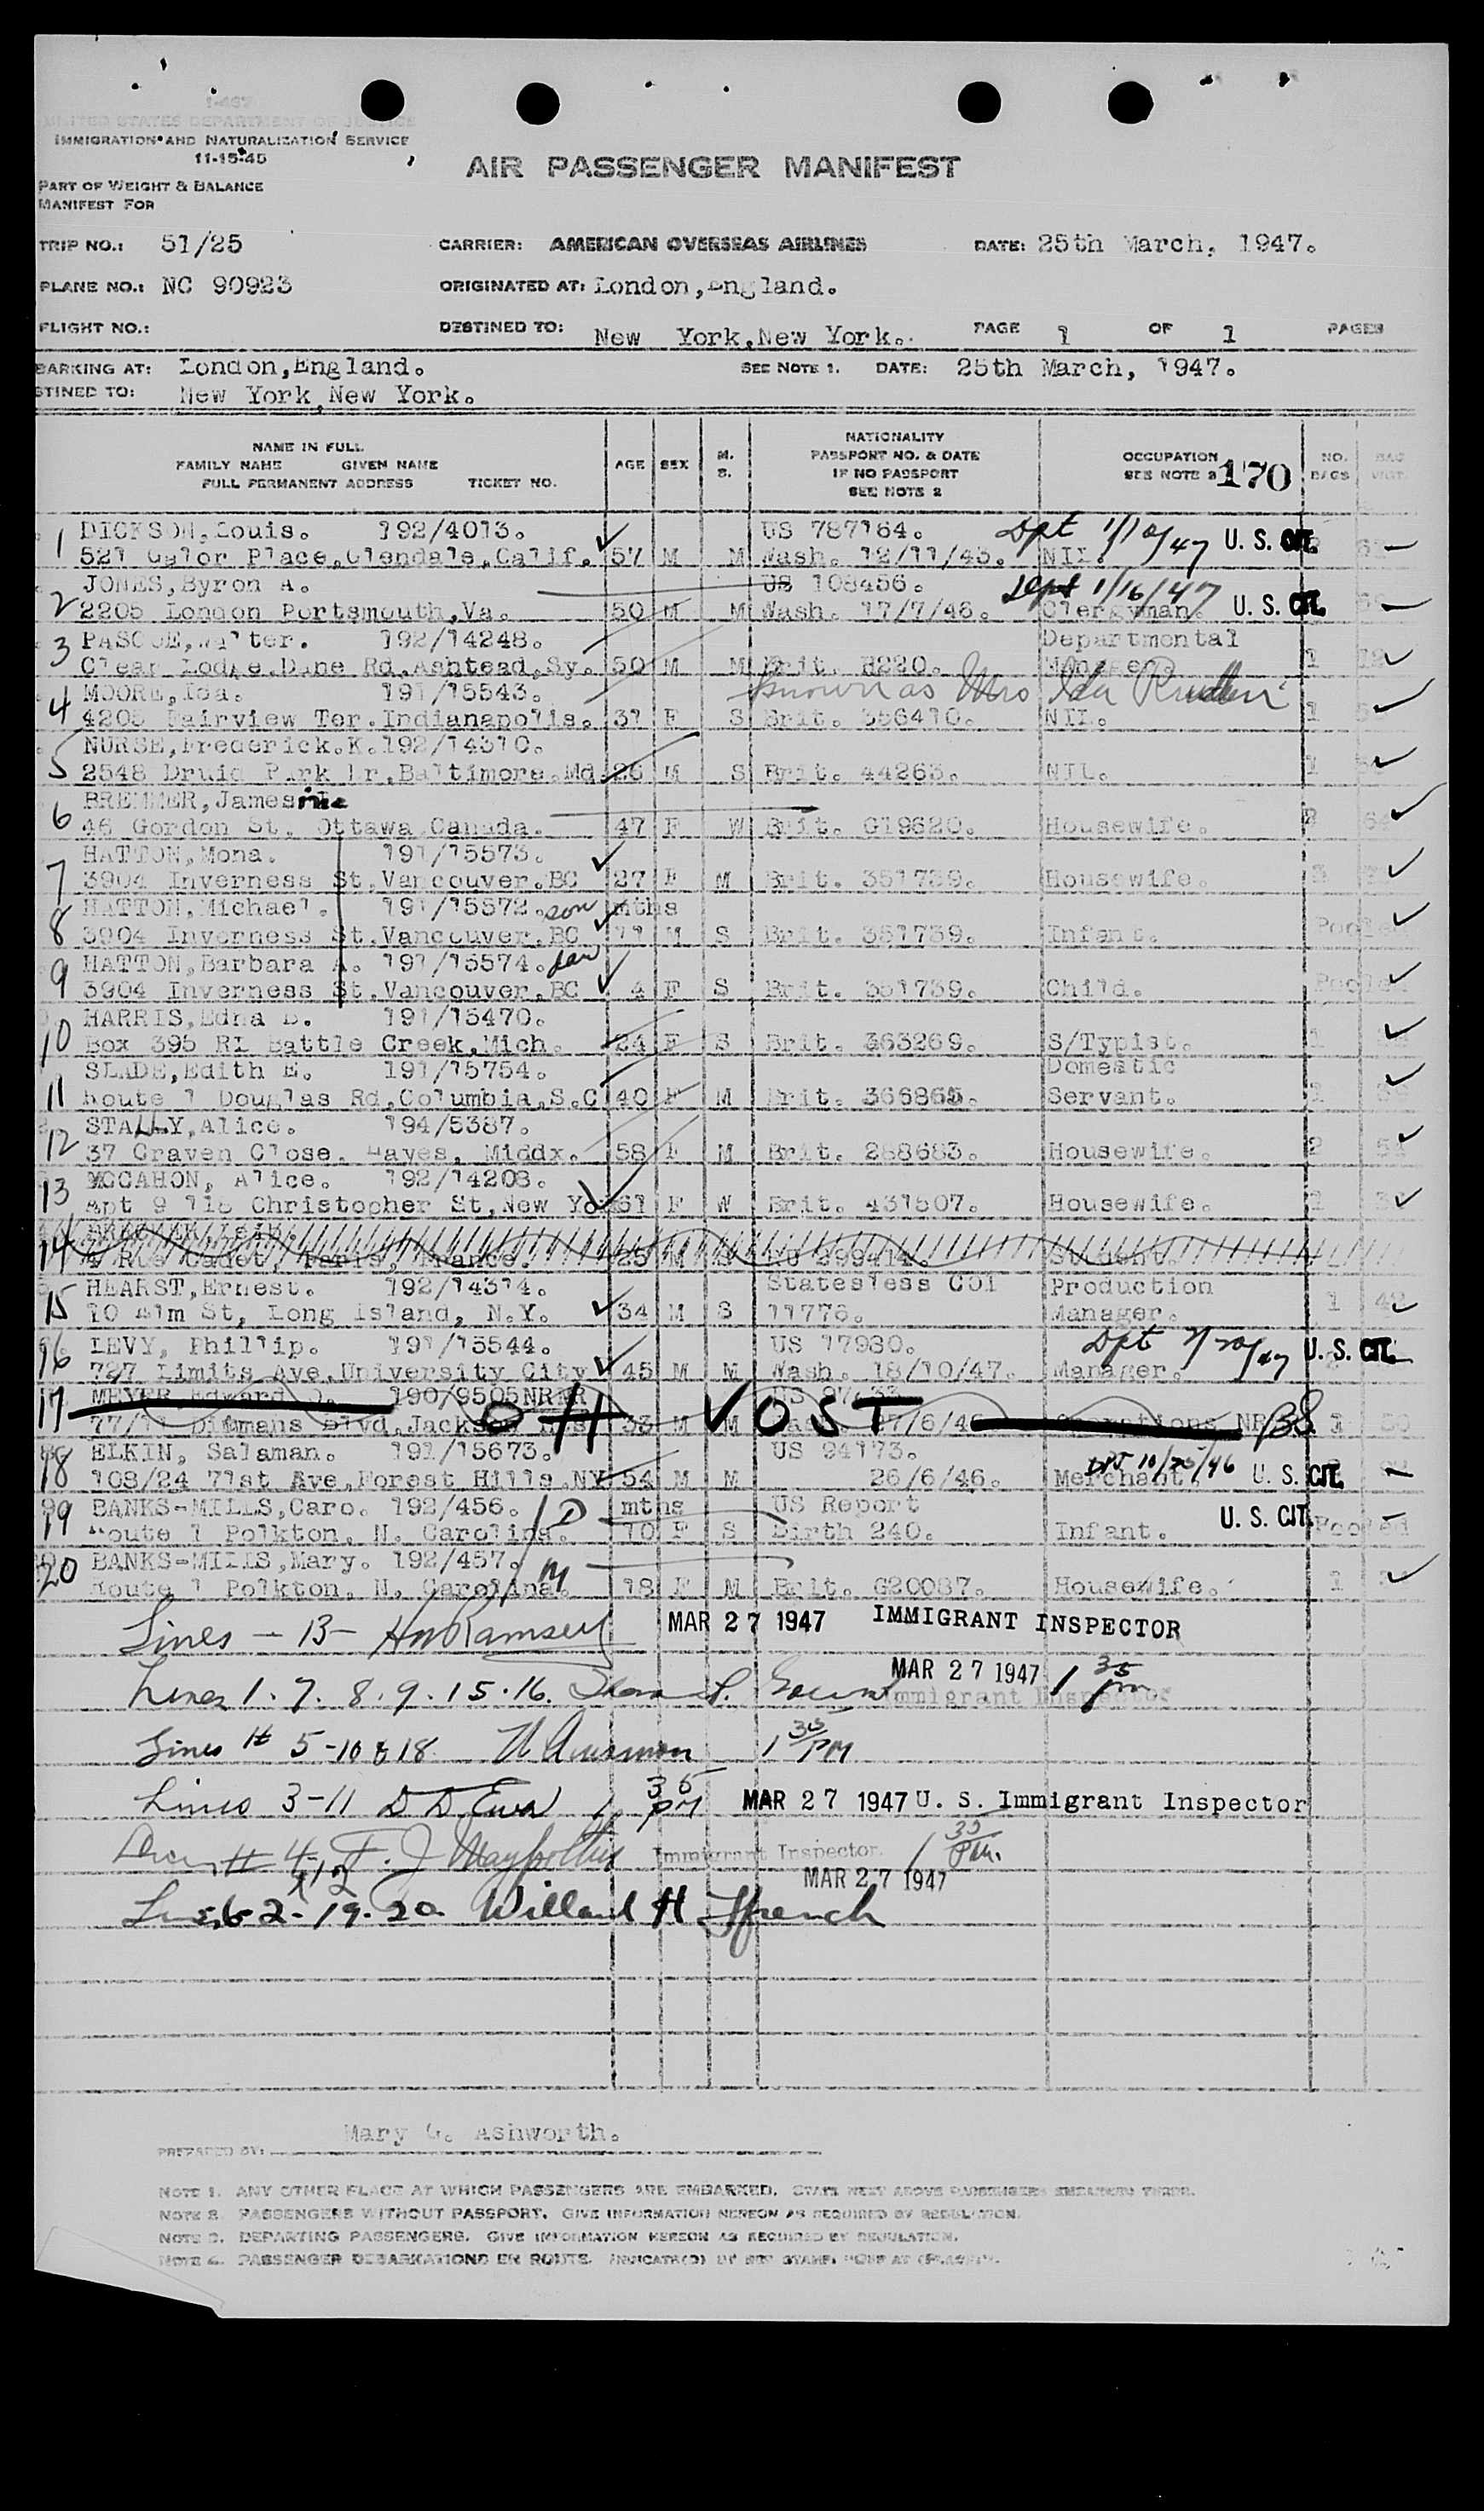 I-467
UNITED STATES DEPARTMENT OF JUSTICE
IMMIGRATION AND NATURALIZATION SERVICE
11-15-45
AIR PASSENGER MANIFEST
PART OF WEIGHT & BALANCE
MANIFEST FOR
TRIP NO.: 51/25 CARRIER: AMERICAN OVERSEAS AIRLINES DATE: 25th March, 1947.
PLANE NO.: NC 90923 ORIGINATED AT: London,England.
FLIGHT NO.: DESTINED TO: New York,New York. PAGE 1 OF 1 PAGES
BARKING AT: London,England. SEE NOTE 1. DATE: 25th March, 1947.
STINED TO: New York,New York.
NAME IN FULL
FAMILY NAME GIVEN NAME
FULL PERMANENT ADDRESS TICKET NO.
AGE SEX M. S.
NATIONALITY
PASSPORT NO. & DATE
IF NO PASSPORT
SEE NOTE 2
OCCUPATION
SEE NOTE 2 170
NO. BAGS BAG WGT.
1 DICKSON,Louis. 192/4013. US 787164. Dpt 1/10/47 U. S. CIT.
521 Galor Place,Glendale,Calif. 57 M M Wash. 12/11/45. NIL.
2 JONES,Byron A. US 108456. Dept 1/16/47
2205 London Portsmouth,Va. 50 M M Wash. 17/7/46. Clergyman. U. S. CIT.
3 PASCOE,Walter. 192/14248. Departmental
Clear Lodge,Dene Rd,Ashtead,Sy. 50 M M Brit. H220. Manager. 1
4 MOORE,Ida. 191/15543. Known as Mrs Ida
4205 Fairview Ter.Indianapolis. 31 F S Brit. 356410. NIL. 1
5 NURSE,Frederick.K.192/14310.
2548 Druid Park Dr,Baltimore.Md 26 M S Brit. 44263. NIL. 1
6 BREMMER,Jamesina
46 Gordon St. Ottawa,Canada. 47 F W Brit. G19620. Housewife. 2
7 HATTON,Mona. 191/15573.
3904 Inverness St.Vancouver.BC 27 F M Brit. 351739. Housewife. 3
8 HATTON,Michael. 191/15572. son mths
3904 Inverness St.Vancouver.BC 11 M S Brit. 351739. Infant. Pooled
9 HATTON,Barbara A. 191/15574. dau
3904 Inverness St.Vancouver.BC 4 F S Brit. 351739. Child. Pooled
10 HARRIS,Edna D. 191/15470.
Box 395 RI Battle Creek,Mich. 24 F S Brit. 363269. S/Typist. 1
11 SLADE,Edith E. 191/15754. Domestic
Route 1 Douglas Rd,Columbia.S.C 40 F M Brit. 366865. Servant.
12 STALLY,Alice. 194/5387.
37 Craven Close. Hayes, Middx. 58 F M Brit. 288683. Housewife. 2 54
13 MCCAHON, Alice. 192/14208.
Apt 9 118 Christopher St,New Yo 61 F W Brit. 431507. Housewife. 1
14
4 Rue Cadet, Paris, France. 25 M S 299414. Student.
15 HEARST,Ernest. 192/14314. Stateless COI Production
10 Elm St, Long Island, N.Y. 34 M S 11776. Manager. 1 42
16 LEVY, Phillip. 191/15544. US 17980. Dpt U. S. CIT.
727 Limits Ave,University City 45 M M Wash. 18/10/47. Manager.
17 MEYER Edward O. 190/9505NRNR
Blvd,Jackson 33 M M Operations NR 1 50
OH VOST
18 ELKIN, Salaman. 191/15673. US 94173. Dpt 10/25/46
108/24 71st Ave,Forest Hills.NY 54 M M 26/6/46. Merchant. U. S. CIT.
19 BANKS-MILLS,Caro. 192/456. D mths US Report U. S. CIT.
Route 1 Polkton, N. Carolina. 10 F S Birth 240. Infant. Pooled
20 BANKS-MILLS,Mary. 192/457. M
Route 1 Polkton, N. Carolina. 18 F M Brit. G20087. Housewife. 1
Lines - 13 - HW Ramsey MAR 27 1947 IMMIGRANT INSPECTOR
Lines 1. 7. 8. 9. 15. 16. MAR 27 1947 1 35 pm
Immigrant Inspector
Lines # 5-10 & 18 1 35 PM
Lines 3-11 1 35 PM MAR 27 1947 U. S. Immigrant Inspector
Lines # 4, 12 Immigrant Inspector 1 35 Pm.
MAR 27 1947
Lines 6-2-19-20 Willard H. Ffrench
Mary G. Ashworth.
PREPARED BY:
NOTE 1. ANY OTHER PLACE AT WHICH PASSENGERS ARE EMBARKED. STATE NEXT ABOVE PASSENGERS EMBARKED THERE.
NOTE 2. PASSENGERS WITHOUT PASSPORT. GIVE INFORMATION HEREON AS REQUIRED BY REGULATION.
NOTE 3. DEPARTING PASSENGERS. GIVE INFORMATION HEREON AS REQUIRED BY REGULATION.
NOTE 4. PASSENGER DEBARKATIONS EN ROUTE.